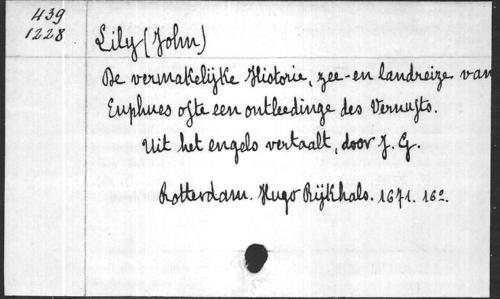 439
1228
Lily (John)
De vermakelijke Historie, zee- en landreize van
Euphues ofte een ontleedinge des Vernufts.
Uit het engels vertaalt, door J. G.
Rotterdam. Hugo Rijkhals. 1671. 16º.